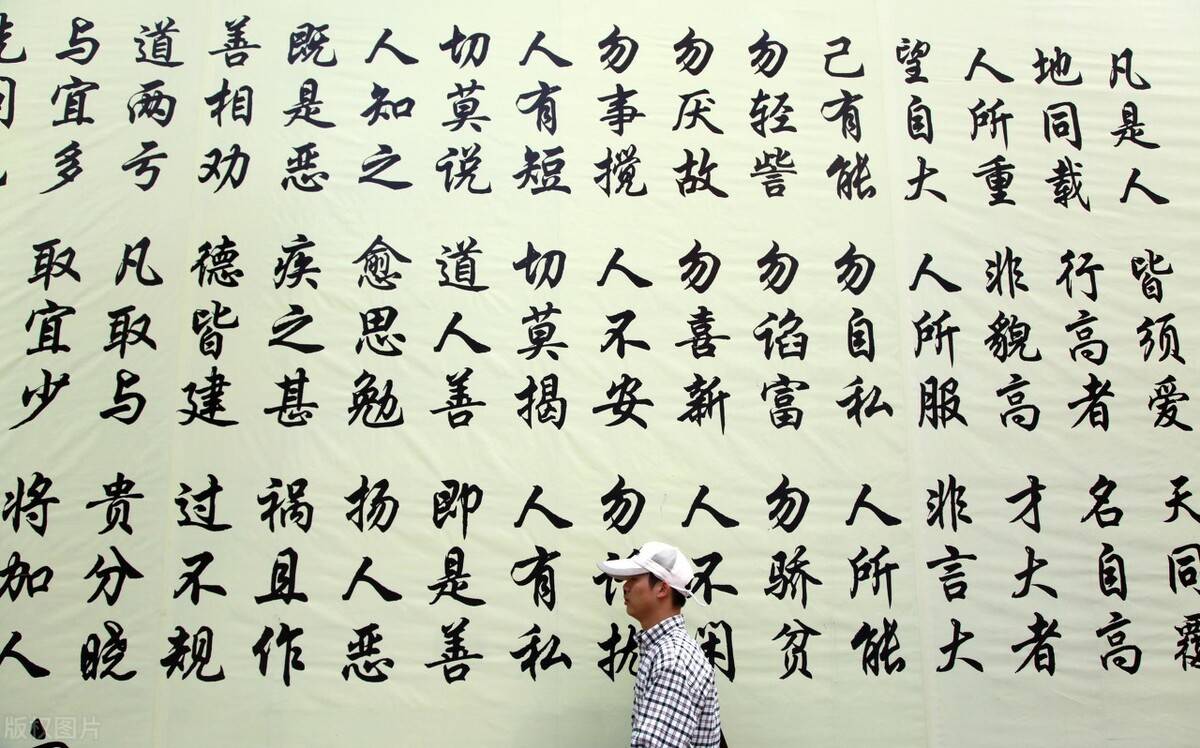 凡是人皆须爱天同覆
地同载行高者名自高
人所重非貌高才大者
望自大人所服非言大
己有能勿自私人所能
勿轻訾勿谄富勿骄贫
勿厌故勿喜新人不闲
勿事搅人不安勿
人有短切莫揭人有私
切莫说道人善即是善
人知之愈思勉扬人恶
既是恶疾之甚祸且作
善相劝德皆建过不规
道两亏凡取与贵分晓
与宜多取宜少将加人
版权图片